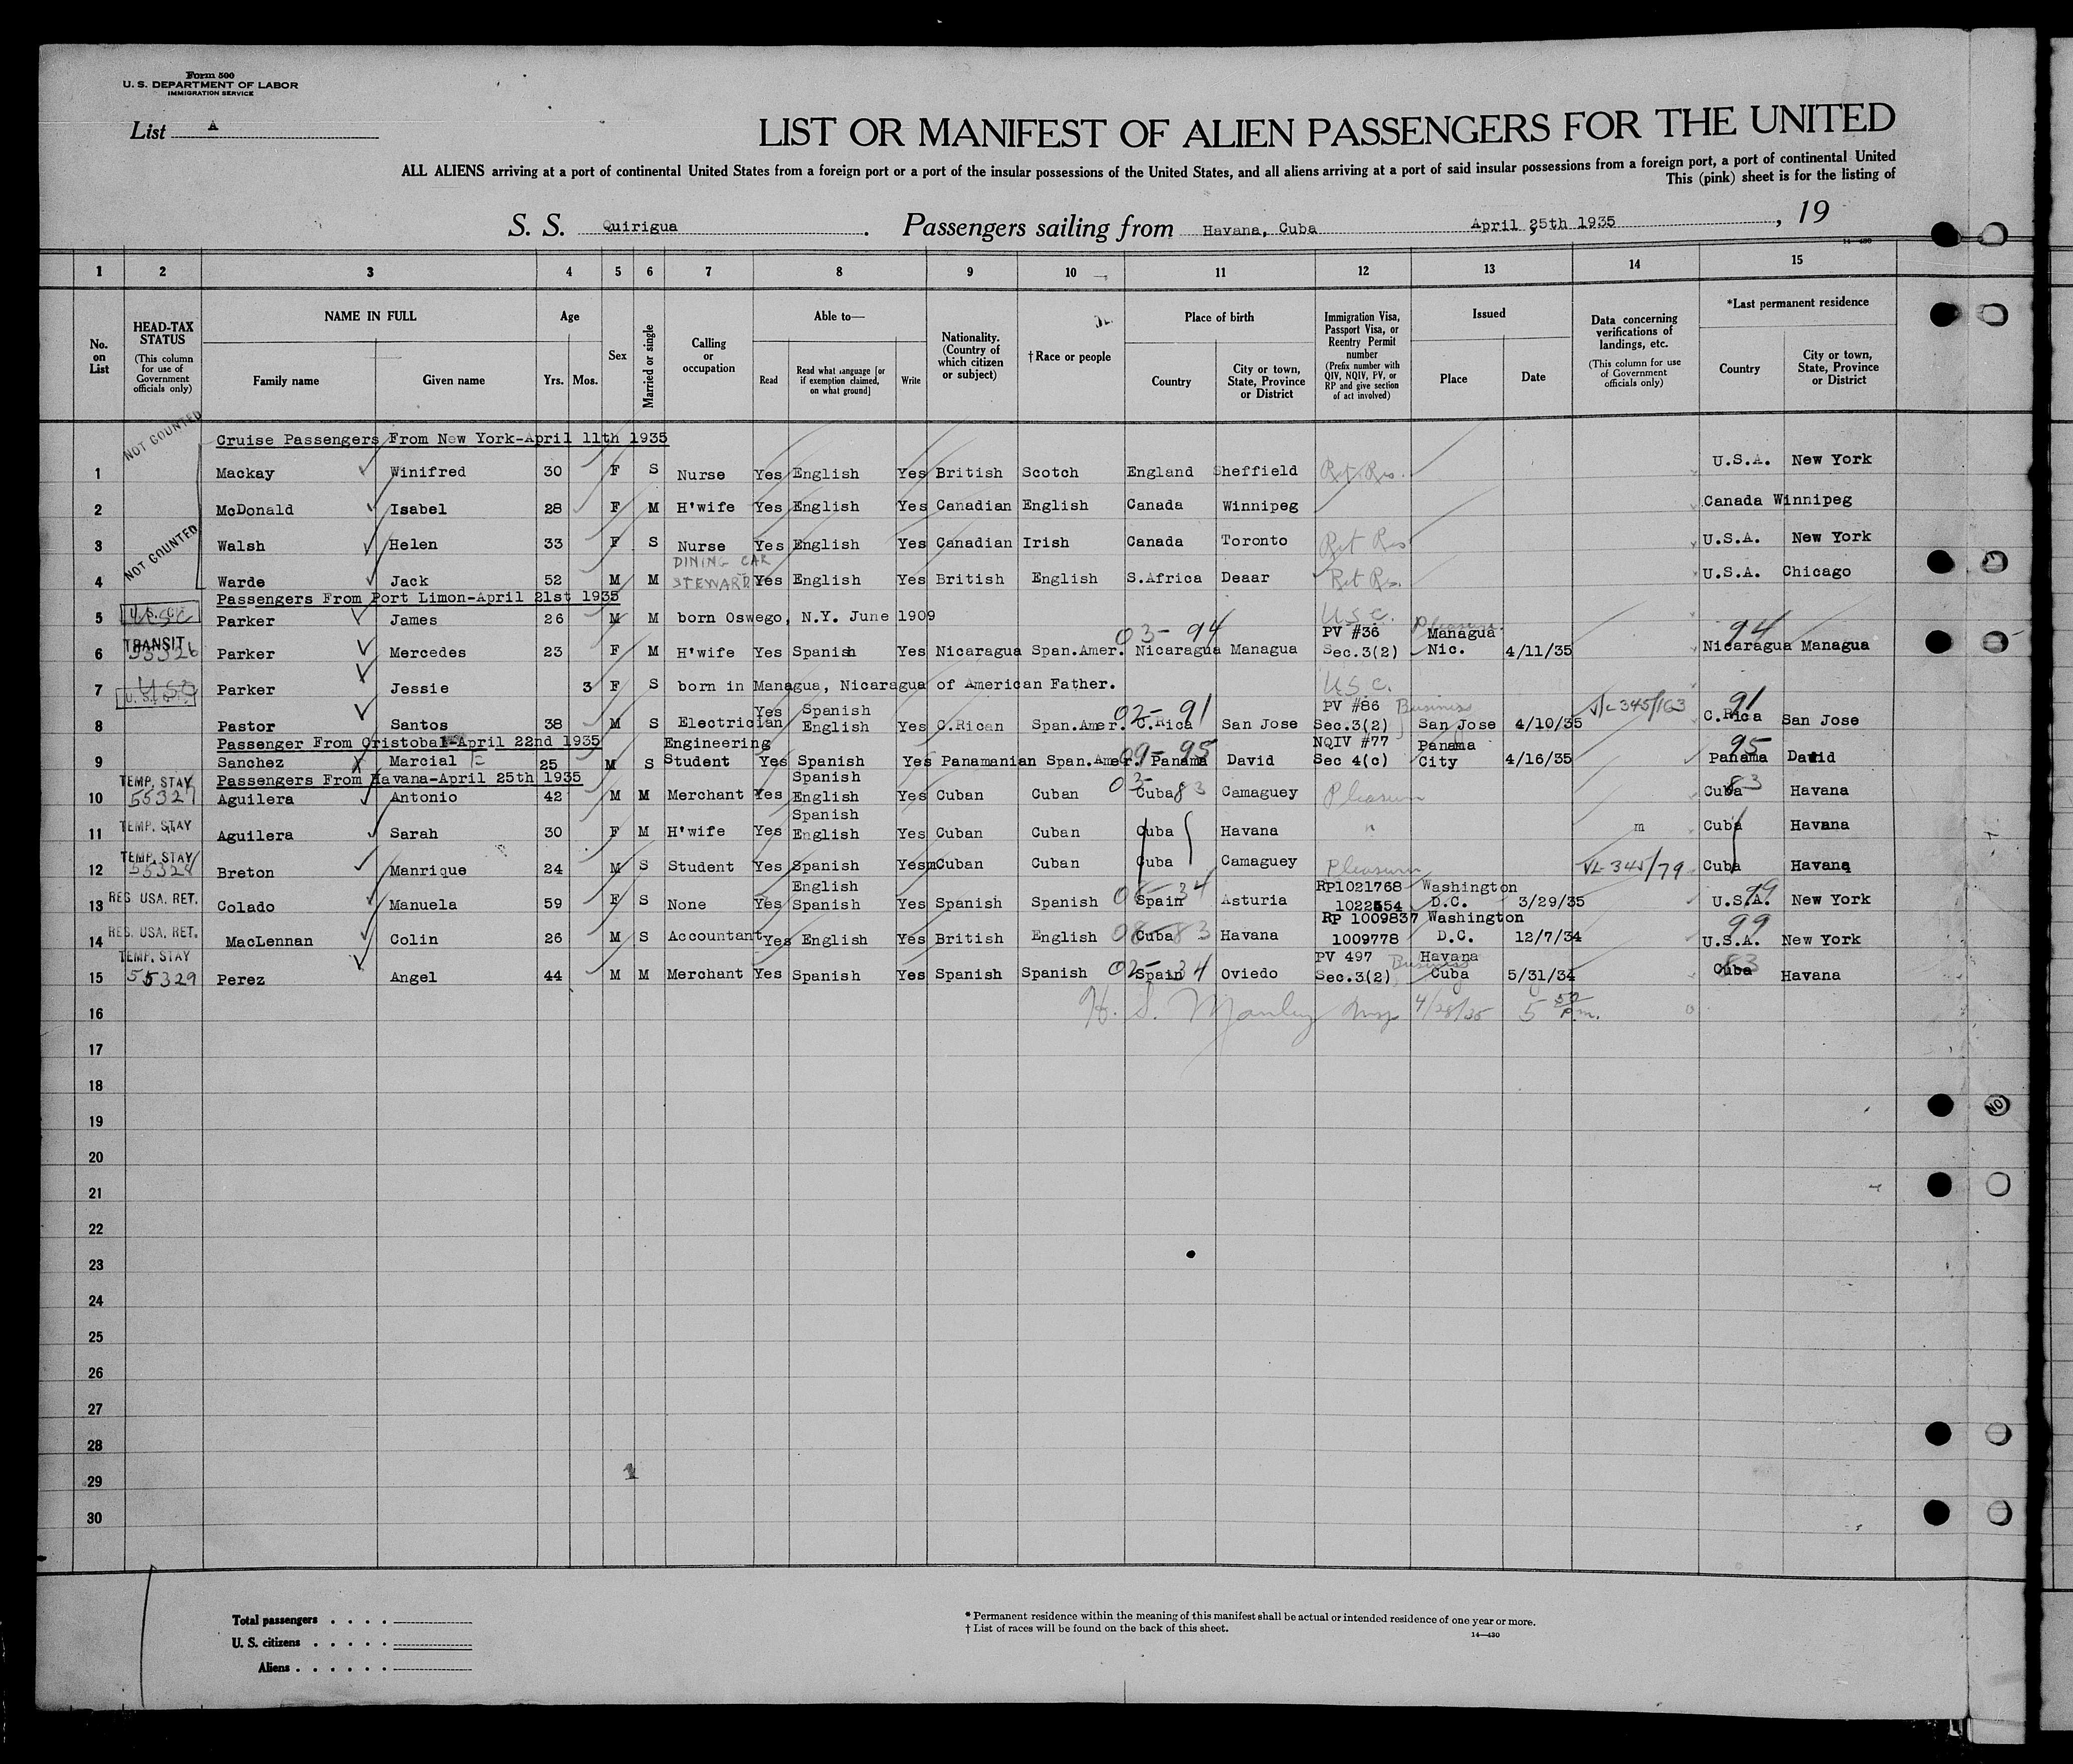 Form 500
U. S. DEPARTMENT OF LABOR
IMMIGRATION SERVICE
List A
LIST OR MANIFEST OF ALIEN PASSENGERS FOR THE UNITED
ALL ALIENS arriving at a port of continental United States from a foreign port or a port of the insular possessions of the United States, and all aliens arriving at a port of said insular possessions from a foreign port, a port of continental United
This (pink) sheet is for the listing of
S. S. Quirigua. Passengers sailing from Havana, Cuba April 25th 1935, 19
14—430
1 2 3 4 5 6 7 8 9 10 11 12 13 14 15
No. on List
HEAD-TAX STATUS (This column for use of Government officials only)
NAME IN FULL Family name Given name
Age Yrs. Mos.
Sex
Married or single
Calling or occupation
Able to— Read Read what language [or if exemption claimed, on what ground] Write
Nationality. (Country of which citizen or subject)
†Race or people
Place of birth Country City or town, State, Province or District
Immigration Visa, Passport Visa, or Reentry Permit number (Prefix number with QIV, NQIV, PV, or RP and give section of act involved)
Issued Place Date
Data concerning verifications of landings, etc. (This column for use of Government officials only)
*Last permanent residence Country City or town, State, Province or District
NOT COUNTED
Cruise Passengers From New York-April 11th 1935
1 Mackay Winifred 30 F S Nurse Yes English Yes British Scotch England Sheffield Ret Res. U.S.A. New York
2 McDonald Isabel 28 F M H'wife Yes English Yes Canadian English Canada Winnipeg Canada Winnipeg
NOT COUNTED
3 Walsh Helen 33 F S Nurse Yes English Yes Canadian Irish Canada Toronto Ret Res U.S.A. New York
4 Warde Jack 52 M M DINING CAR STEWARD Yes English Yes British English S.Africa Deaar Ret Rs. U.S.A. Chicago
Passengers From Port Limon-April 21st 1935
5 U.S.C. Parker James 26 M M born Oswego, N.Y. June 1909 U.S.C.
6 TRANSIT 55326 Parker Mercedes 23 F M H'wife Yes Spanish Yes Nicaragua Span.Amer. 03-94 Nicaragua Managua PV #36 Sec.3(2) Pleasure Managua Nic. 4/11/35 94 Nicaragua Managua
7 USC Parker Jessie 3 F S born in Managua, Nicaragua of American Father. U.S.C.
8 Pastor Santos 38 M S Electrician Yes Spanish English Yes C.Rican Span.Amer. 02-91 C.Rica San Jose PV #86 Sec.3(2) Business San Jose 4/10/35 VL-345/163 91 C.Rica San Jose
Passenger From Cristobal-April 22nd 1935
9 Sanchez Marcial 25 M S Engineering Student Yes Spanish Yes Panamanian Span.Amer. 09-95 Panama David NQIV #77 Sec 4(c) Panama City 4/16/35 95 Panama David
Passengers From Havana-April 25th 1935
10 TEMP. STAY 55327 Aguilera Antonio 42 M M Merchant Yes Spanish English Yes Cuban Cuban 03- Cuba 83 Camaguey Pleasure 83 Cuba Havana
11 TEMP. STAY Aguilera Sarah 30 F M H'wife Yes Spanish English Yes Cuban Cuban Cuba Havana " m Cuba Havana
12 TEMP. STAY 55328 Breton Manrique 24 M S Student Yes Spanish Yes m Cuban Cuban Cuba Camaguey Pleasure VL-345/79 Cuba Havana
13 RES USA. RET. Colado Manuela 59 F S None Yes English Spanish Yes Spanish Spanish 08-34 Spain Asturia RP1021768 1022554 Washington D.C. 3/29/35 99 U.S.A. New York
14 RES. USA. RET. MacLennan Colin 26 M S Accountant Yes English Yes British English 08-83 Cuba Havana RP 1009837 1009778 Washington D.C. 12/7/34 99 U.S.A. New York
15 TEMP. STAY 55329 Perez Angel 44 M M Merchant Yes Spanish Yes Spanish Spanish 02-34 Spain Oviedo PV 497 Sec.3(2) Business Havana Cuba 5/31/34 83 Cuba Havana
16 H. S. Manley Insp 4/28/35 5 50 P.m.
17
18
19
20
21
22
23
24
25
26
27
28
29
30
NO
Total passengers . . . .
U. S. citizens . . . . .
Aliens . . . . . .
* Permanent residence within the meaning of this manifest shall be actual or intended residence of one year or more.
† List of races will be found on the back of this sheet.
14—430